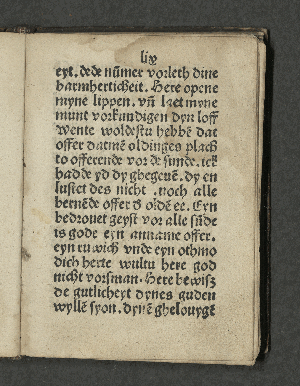 lix
eyt. dede nūmer vorleth dine
barmherticheit. Here opene
myne lippen. vñ laet myne
munt vorkundigen dyn loff
Wente woldestu hebbē dat
offer datmē oldinges plach
to offerende vor de sunde. ick
hadde yd dy ghegeuē. dy en
lustet des nicht. noch alle
bernēde offer d oldē ee. Eyn
bedrouet geyst vor alle sūde
is gode eyn anname offer.
eyn ruwich vnde eyn othmo
dich herte wultu here god
nicht vorsman. Here bewisz
de gutlicheyt dynes guden
wyllē syon. dynē ghelouygē